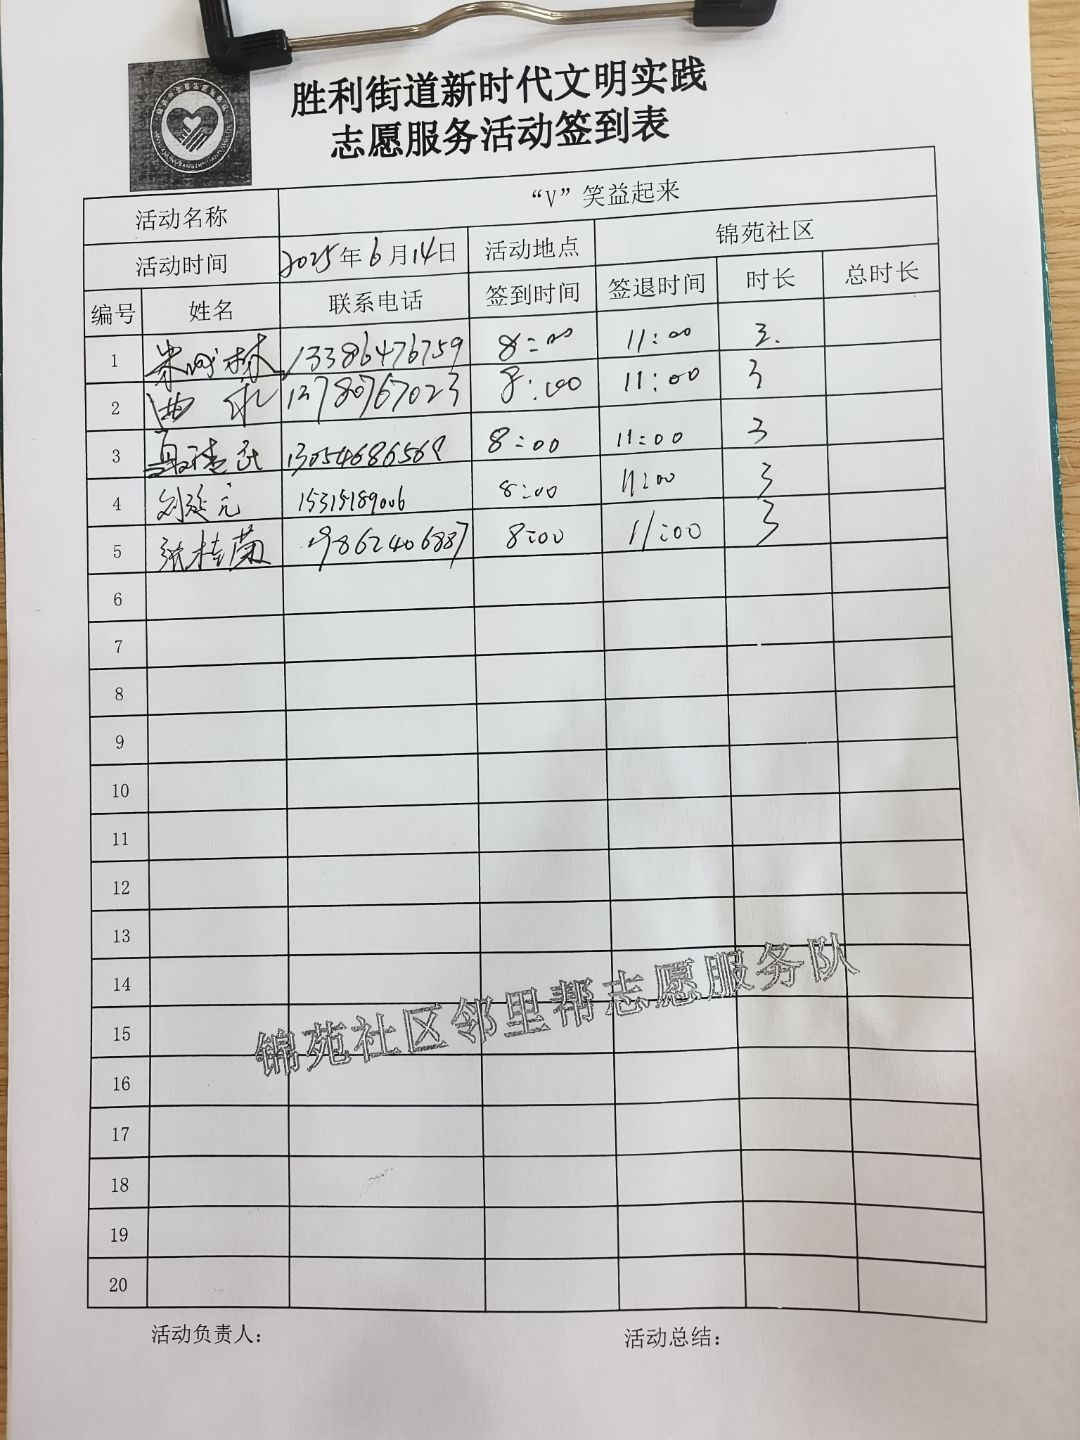 胜利街道新时代文明实践
志愿服务活动签到表
活动名称 “V”笑益起来
活动时间 2025年6月14日 活动地点 锦苑社区
编号 姓名 联系电话 签到时间 签退时间 时长 总时长
1 林 13386476759 8:00 11:00 3.
2 曲 13780767023 8:00 11:00 3
3 13054686568 8:00 11:00 3
4 刘延元 15315189006 8:00 11:00 3
5 张桂菊 19862406887 8:00 11:00 3
6
7
8
9
10
11
12
13
14
15
16
17
18
19
20
锦苑社区邻里帮志愿服务队
活动负责人： 活动总结：